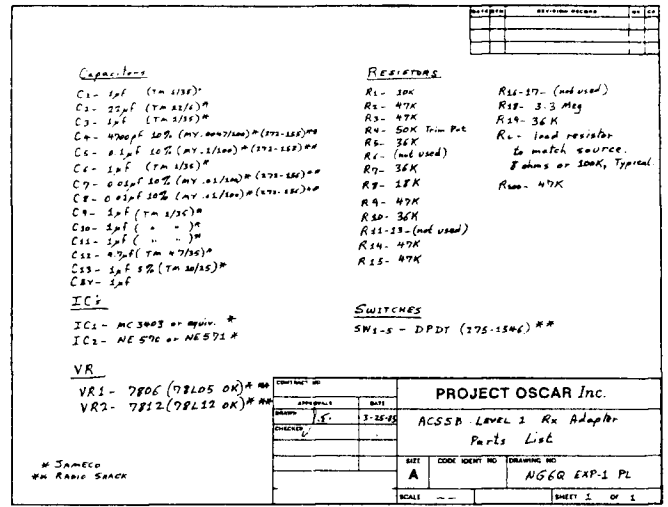 DATE SYM REVISION RECORD DR CK
Capacitors
C1- 1µf (TM 1/35)*
C2- 22µf (TM 22/6)*
C3- 1µf (TM 1/35)*
C4- 4700pf 10% (MY .0047/100)*(272-155)**
C5- 0.1µf 10% (MY .1/100)*(272-155)**
C6- 1µf (TM 1/35)*
C7- 0.01µf 10% (MY .01/100)*(272-156)**
C8- 0.01µf 10% (MY .01/100)*(272-156)**
C9- 1µf (TM 1/35)*
C10- 1µf ( " " )*
C11- 1µf ( " " )*
C12- 4.7µf (TM 4.7/35)*
C13- 1µf 5% (TM 10/35)*
CBY- 1µf
IC's
IC1- MC3403 or equiv. *
IC2- NE 570 or NE571 *
VR
VR1- 7806 (78L05 OK)* **
VR2- 7812 (78L12 OK)* **
* JAMECO
** RADIO SHACK
RESISTORS
R1- 10K
R2- 47K
R3- 47K
R4- 50K Trim Pot
R5- 36K
R6- (not used)
R7- 36K
R8- 18K
R9- 47K
R10- 36K
R11-13-(not used)
R14- 47K
R15- 47K
R16-17- (not used)
R18- 3.3 Meg
R19- 36K
RL- load resistor
to match source.
8 ohms or 100K, Typical.
R100- 47K
SWITCHES
SW1-5 - DPDT (275-1546) **
CONTRACT NO
APPROVALS DATE
DRAWN 3-25-85
CHECKED
PROJECT OSCAR Inc.
ACSSB LEVEL 1 Rx Adapter
Parts List
SIZE CODE IDENT NO DRAWING NO
A NG6Q EXP-1 PL
SCALE -- SHEET 1 OF 1